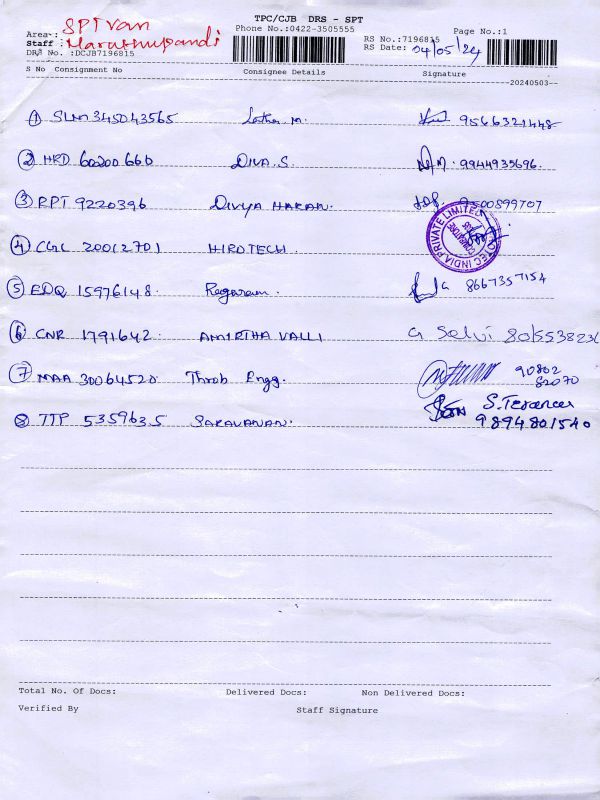 TPC/CJB DRS - SPT
Area : SPT Van
Phone No.:0422-3505555
RS No.:7196815
Page No.:1
Staff : Maruthupandi
RS Date: 04/05/24
DRS No. :DCJB7196815
S No Consignment No Consignee Details Signature
20240503
1 SLM 345043565 Latha. M. 9566321448
2 HRD 60200660 DIVA. S. 9944935696.
3 RPT 9220396 DIVYA HARAN. 9500599707
4 CGL 20012701 HIROTECH. INDIA PRIVATE LIMITED
5 EDQ 15976148. 8667357154
6 CNR 1791642. AMIRTHA VALLI G Selvi
7 MAA 30064520 Throb Engg. 90802
82070
8 TTP 5359635 SARAVANAN. S. Terance
9894801540
Total No. Of Docs: Delivered Docs: Non Delivered Docs:
Verified By Staff Signature